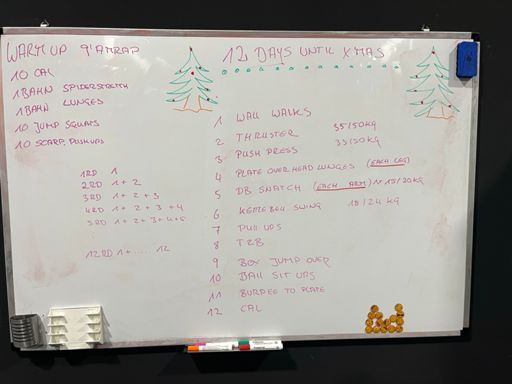 WARM UP 9' AMRAP
10 CAL
1 BAHN SPIDERSTRETCH
1 BAHN LUNGES
10 JUMP SQUATS
10 SCARP. PUSHUPS
1RD 1
2RD 1+2
3RD 1+2+3
4RD 1+2+3+4
5RD 1+2+3+4+5
12RD 1+.... 12
12 DAYS UNTIL X'MAS
1 WALL WALKS
2 THRUSTER 35/50KG
3 PUSH PRESS 35/50KG
4 PLATE OVERHEAD LUNGES (EACH LEG)
5 DB SNATCH (EACH ARM) 15/20KG
6 KETTEBELL SWING 18/24 KG
7 PULL UPS
8 T2B
9 BOX JUMP OVER
10 BALL SIT UPS
11 BURPEE TO PLATE
12 CAL